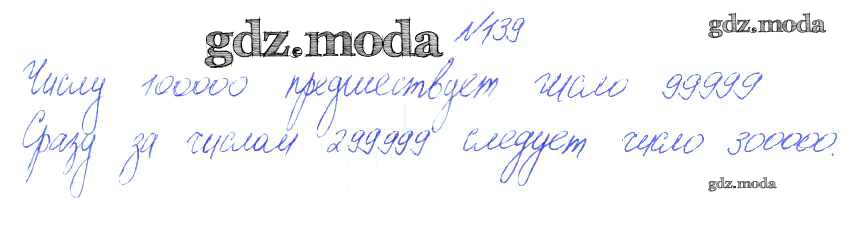 gdz.moda №139 gdz.moda
Числу 100000 предшествует число 99999
Сразу за числом 299999 следует число 300000.
gdz.moda